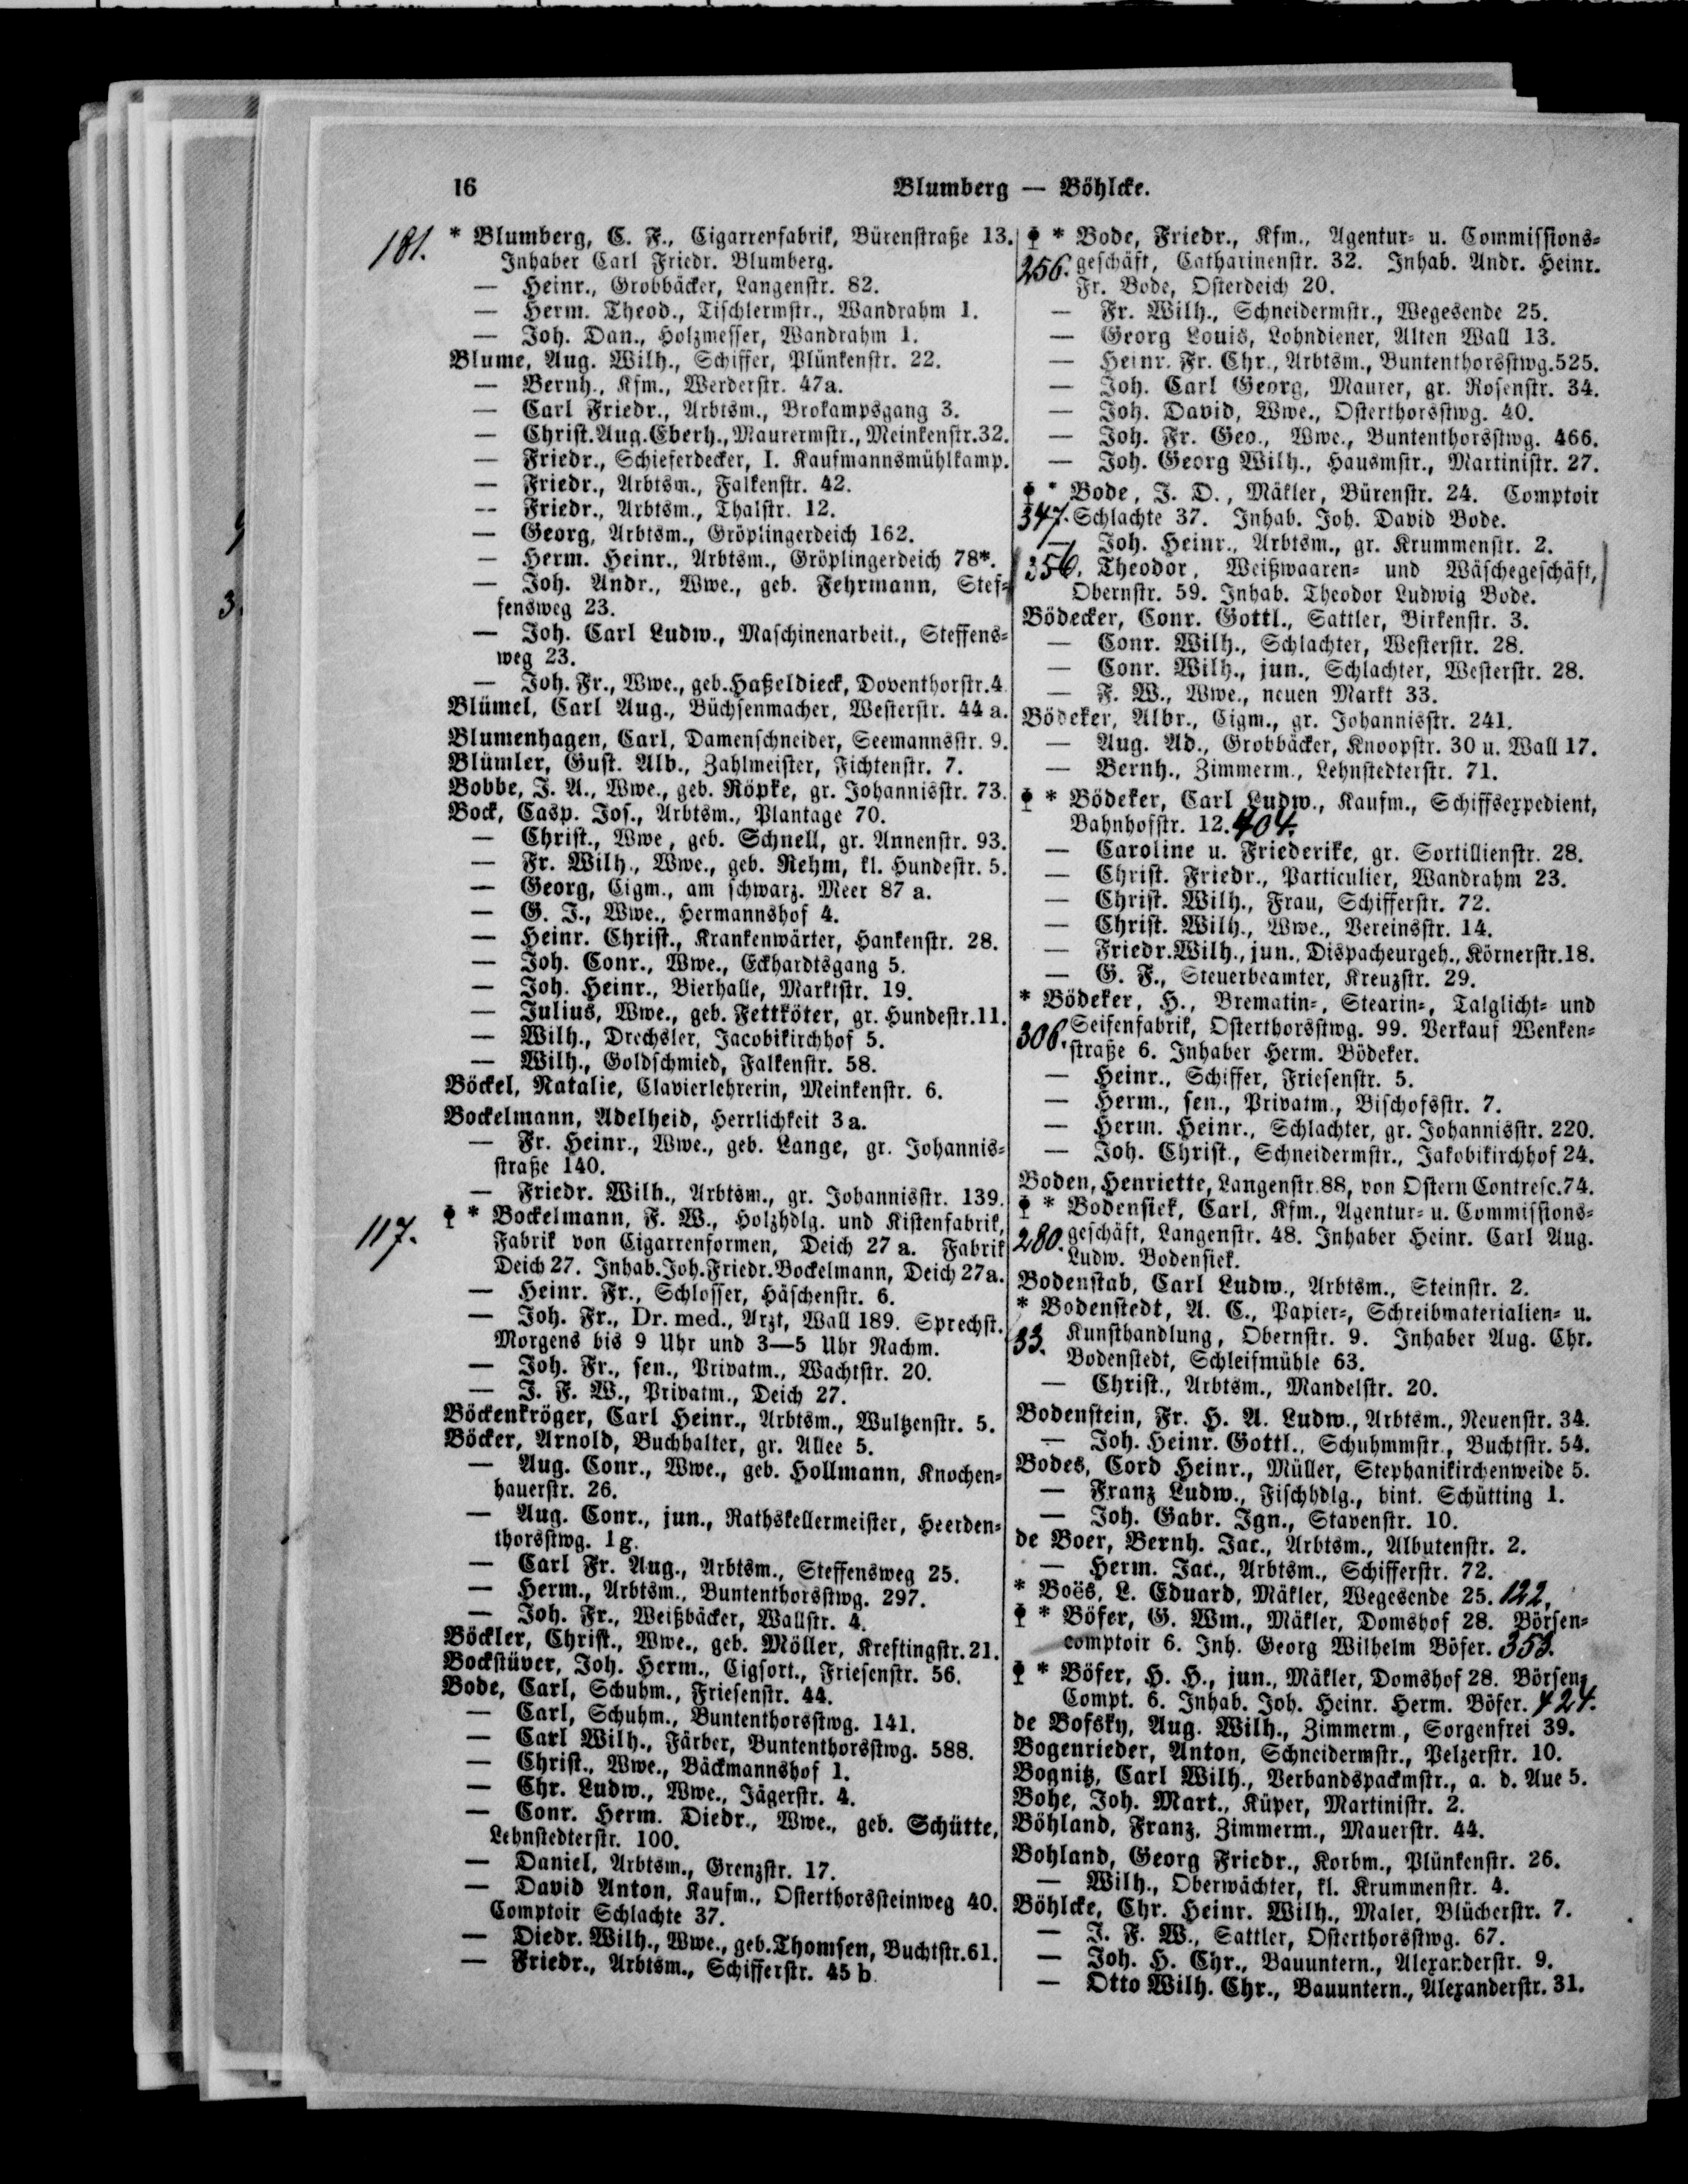 16
Blumberg — Böhlcke.
181.
* Blumberg, C. F., Cigarrenfabrik, Bürenstraße 13.
Inhaber Carl Friedr. Blumberg.
— Heinr., Grobbäcker, Langenstr. 82.
— Herm. Theod., Tischlermstr., Wandrahm 1.
— Joh. Dan., Holzmesser, Wandrahm 1.
Blume, Aug. Wilh., Schiffer, Plünkenstr. 22.
— Bernh., Kfm., Werderstr. 47a.
— Carl Friedr., Arbtsm., Brokampsgang 3.
— Christ. Aug. Eberh., Maurermstr., Meinkenstr. 32.
— Friedr., Schieferdecker, I. Kaufmannsmühlkamp.
— Friedr., Arbtsm., Falkenstr. 42.
— Friedr., Arbtsm., Thalstr. 12.
— Georg, Arbtsm., Gröplingerdeich 162.
— Herm. Heinr., Arbtsm., Gröplingerdeich 78*.
— Joh. Andr., Wwe., geb. Fehrmann, Stef-
fensweg 23.
— Joh. Carl Ludw., Maschinenarbeit., Steffens-
weg 23.
— Joh. Fr., Wwe., geb. Haßeldieck, Doventhorstr. 4
Blümel, Carl Aug., Büchsenmacher, Westerstr. 44 a.
Blumenhagen, Carl, Damenschneider, Seemannsstr. 9.
Blümler, Gust. Alb., Zahlmeister, Fichtenstr. 7.
Bobbe, J. A., Wwe., geb. Röpke, gr. Johannisstr. 73.
Bock, Casp. Jos., Arbtsm., Plantage 70.
— Christ., Wwe, geb. Schnell, gr. Annenstr. 93.
— Fr. Wilh., Wwe., geb. Rehm, kl. Hundestr. 5.
— Georg, Cigm., am schwarz. Meer 87 a.
— G. J., Wwe., Hermannshof 4.
— Heinr. Christ., Krankenwärter, Hankenstr. 28.
— Joh. Conr., Wwe., Eckhardtsgang 5.
— Joh. Heinr., Bierhalle, Marktstr. 19.
— Julius, Wwe., geb. Fettköter, gr. Hundestr. 11.
— Wilh., Drechsler, Jacobikirchhof 5.
— Wilh., Goldschmied, Falkenstr. 58.
Böckel, Natalie, Clavierlehrerin, Meinkenstr. 6.
Bockelmann, Adelheid, Herrlichkeit 3a.
— Fr. Heinr., Wwe., geb. Lange, gr. Johannis-
straße 140.
— Friedr. Wilh., Arbtsm., gr. Johannisstr. 139.
117.
* Bockelmann, F. W., Holzhdlg. und Kistenfabrik,
Fabrik von Cigarrenformen, Deich 27 a. Fabrik
Deich 27. Inhab. Joh. Friedr. Bockelmann, Deich 27a.
— Heinr. Fr., Schlosser, Häschenstr. 6.
— Joh. Fr., Dr. med., Arzt, Wall 189. Sprechst.
Morgens bis 9 Uhr und 3—5 Uhr Nachm.
— Joh. Fr., sen., Privatm., Wachtstr. 20.
— J. F. W., Privatm., Deich 27.
Böckenkröger, Carl Heinr., Arbtsm., Wultzenstr. 5.
Böcker, Arnold, Buchhalter, gr. Allee 5.
— Aug. Conr., Wwe., geb. Hollmann, Knochen-
hauerstr. 26.
— Aug. Conr., jun., Rathskellermeister, Heerden-
thorsstwg. 1g.
— Carl Fr. Aug., Arbtsm., Steffensweg 25.
— Herm., Arbtsm., Buntenthorsstwg. 297.
— Joh. Fr., Weißbäcker, Wallstr. 4.
Böckler, Christ., Wwe., geb. Möller, Kreftingstr. 21.
Bockstüver, Joh. Herm., Cigsort., Friesenstr. 56.
Bode, Carl, Schuhm., Friesenstr. 44.
— Carl, Schuhm., Buntenthorsstwg. 141.
— Carl Wilh., Färber, Buntenthorsstwg. 588.
— Christ., Wwe., Bäckmannshof 1.
— Chr. Ludw., Wwe., Jägerstr. 4.
— Conr. Herm. Diedr., Wwe., geb. Schütte,
Lehnstedterstr. 100.
— Daniel, Arbtsm., Grenzstr. 17.
— David Anton, Kaufm., Osterthorssteinweg 40.
Comptoir Schlachte 37.
— Diedr. Wilh., Wwe., geb. Thomsen, Buchtstr. 61.
— Friedr., Arbtsm., Schifferstr. 45 b
* Bode, Friedr., Kfm., Agentur- u. Commissions-
256. geschäft, Catharinenstr. 32. Inhab. Andr. Heinr.
Fr. Bode, Osterdeich 20.
— Fr. Wilh., Schneidermstr., Wegesende 25.
— Georg Louis, Lohndiener, Alten Wall 13.
— Heinr. Fr. Chr., Arbtsm., Buntenthorsstwg. 525.
— Joh. Carl Georg, Maurer, gr. Rosenstr. 34.
— Joh. David, Wwe., Osterthorsstwg. 40.
— Joh. Fr. Geo., Wwe., Buntenthorsstwg. 466.
— Joh. Georg Wilh., Hausmstr., Martinistr. 27.
* Bode, J. D., Mäkler, Bürenstr. 24. Comptoir
347. Schlachte 37. Inhab. Joh. David Bode.
— Joh. Heinr., Arbtsm., gr. Krummenstr. 2.
356. Theodor, Weißwaaren- und Wäschegeschäft,
Obernstr. 59. Inhab. Theodor Ludwig Bode.
Bödecker, Conr. Gottl., Sattler, Birkenstr. 3.
— Conr. Wilh., Schlachter, Westerstr. 28.
— Conr. Wilh., jun., Schlachter, Westerstr. 28.
— F. W., Wwe., neuen Markt 33.
Bödeker, Albr., Cigm., gr. Johannisstr. 241.
— Aug. Ad., Grobbäcker, Knoopstr. 30 u. Wall 17.
— Bernh., Zimmerm., Lehnstedterstr. 71.
* Bödeker, Carl Ludw., Kaufm., Schiffsexpedient,
Bahnhofstr. 12. 404.
— Caroline u. Friederike, gr. Sortillienstr. 28.
— Christ. Friedr., Particulier, Wandrahm 23.
— Christ. Wilh., Frau, Schifferstr. 72.
— Christ. Wilh., Wwe., Vereinsstr. 14.
— Friedr. Wilh., jun., Dispacheurgeh., Körnerstr. 18.
— G. F., Steuerbeamter, Kreuzstr. 29.
* Bödeker, H., Brematin-, Stearin-, Talglicht- und
306. Seifenfabrik, Osterthorsstwg. 99. Verkauf Wenken-
straße 6. Inhaber Herm. Bödeker.
— Heinr., Schiffer, Friesenstr. 5.
— Herm., sen., Privatm., Bischofsstr. 7.
— Herm. Heinr., Schlachter, gr. Johannisstr. 220.
— Joh. Christ., Schneidermstr., Jakobikirchhof 24.
Boden, Henriette, Langenstr. 88, von Ostern Contresc. 74.
* Bodensiek, Carl, Kfm., Agentur- u. Commissions-
280. geschäft, Langenstr. 48. Inhaber Heinr. Carl Aug.
Ludw. Bodensiek.
Bodenstab, Carl Ludw., Arbtsm., Steinstr. 2.
* Bodenstedt, A. C., Papier-, Schreibmaterialien- u.
33. Kunsthandlung, Obernstr. 9. Inhaber Aug. Chr.
Bodenstedt, Schleifmühle 63.
— Christ., Arbtsm., Mandelstr. 20.
Bodenstein, Fr. H. A. Ludw., Arbtsm., Neuenstr. 34.
— Joh. Heinr. Gottl., Schuhmmstr., Buchtstr. 54.
Bodes, Cord Heinr., Müller, Stephanikirchenweide 5.
— Franz Ludw., Fischhdlg., hint. Schütting 1.
— Joh. Gabr. Ign., Stavenstr. 10.
de Boer, Bernh. Jac., Arbtsm., Albutenstr. 2.
— Herm. Jac., Arbtsm., Schifferstr. 72.
* Boës, L. Eduard, Mäkler, Wegesende 25. 122.
* Böfer, G. Wm., Mäkler, Domshof 28. Börsen-
comptoir 6. Inh. Georg Wilhelm Böfer. 353.
* Böfer, H. H., jun., Mäkler, Domshof 28. Börsen-
Compt. 6. Inhab. Joh. Heinr. Herm. Böfer. 424.
de Bofsky, Aug. Wilh., Zimmerm., Sorgenfrei 39.
Bogenrieder, Anton, Schneidermstr., Pelzerstr. 10.
Bognitz, Carl Wilh., Verbandspackmstr., a. d. Aue 5.
Bohe, Joh. Mart., Küper, Martinistr. 2.
Böhland, Franz, Zimmerm., Mauerstr. 44.
Bohland, Georg Friedr., Korbm., Plünkenstr. 26.
— Wilh., Oberwächter, kl. Krummenstr. 4.
Böhlcke, Chr. Heinr. Wilh., Maler, Blücherstr. 7.
— J. F. W., Sattler, Osterthorsstwg. 67.
— Joh. H. Chr., Bauuntern., Alexanderstr. 9.
— Otto Wilh. Chr., Bauuntern., Alexanderstr. 31.